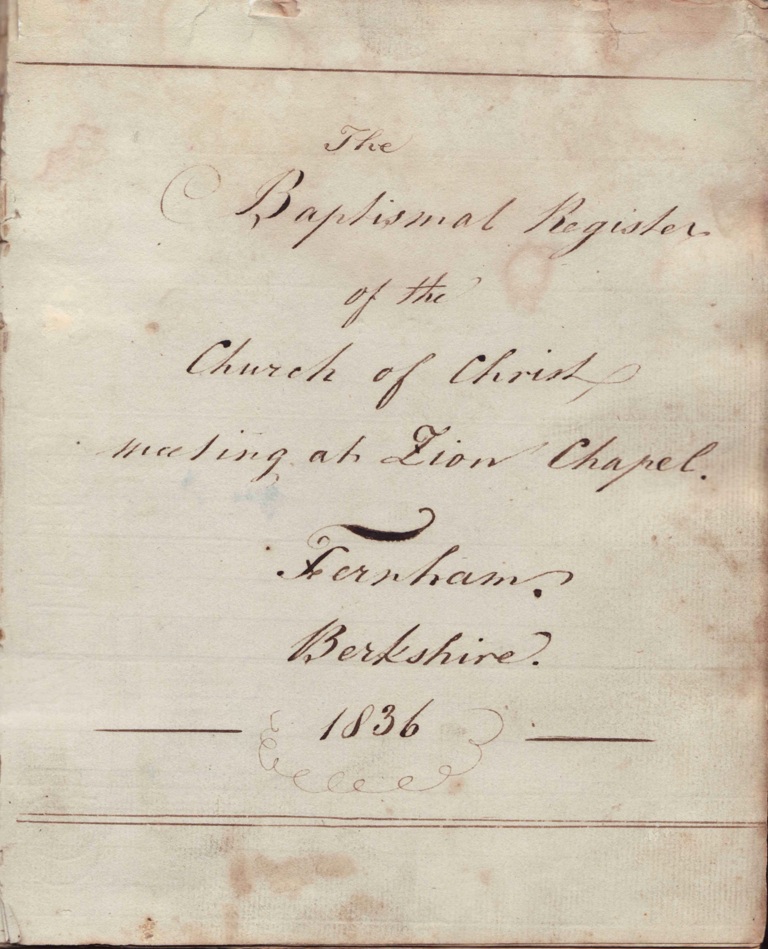 The
Baptismal Register
of the
Church of Christ
meeting at Zion Chapel.
Fernham.
Berkshire.
1836